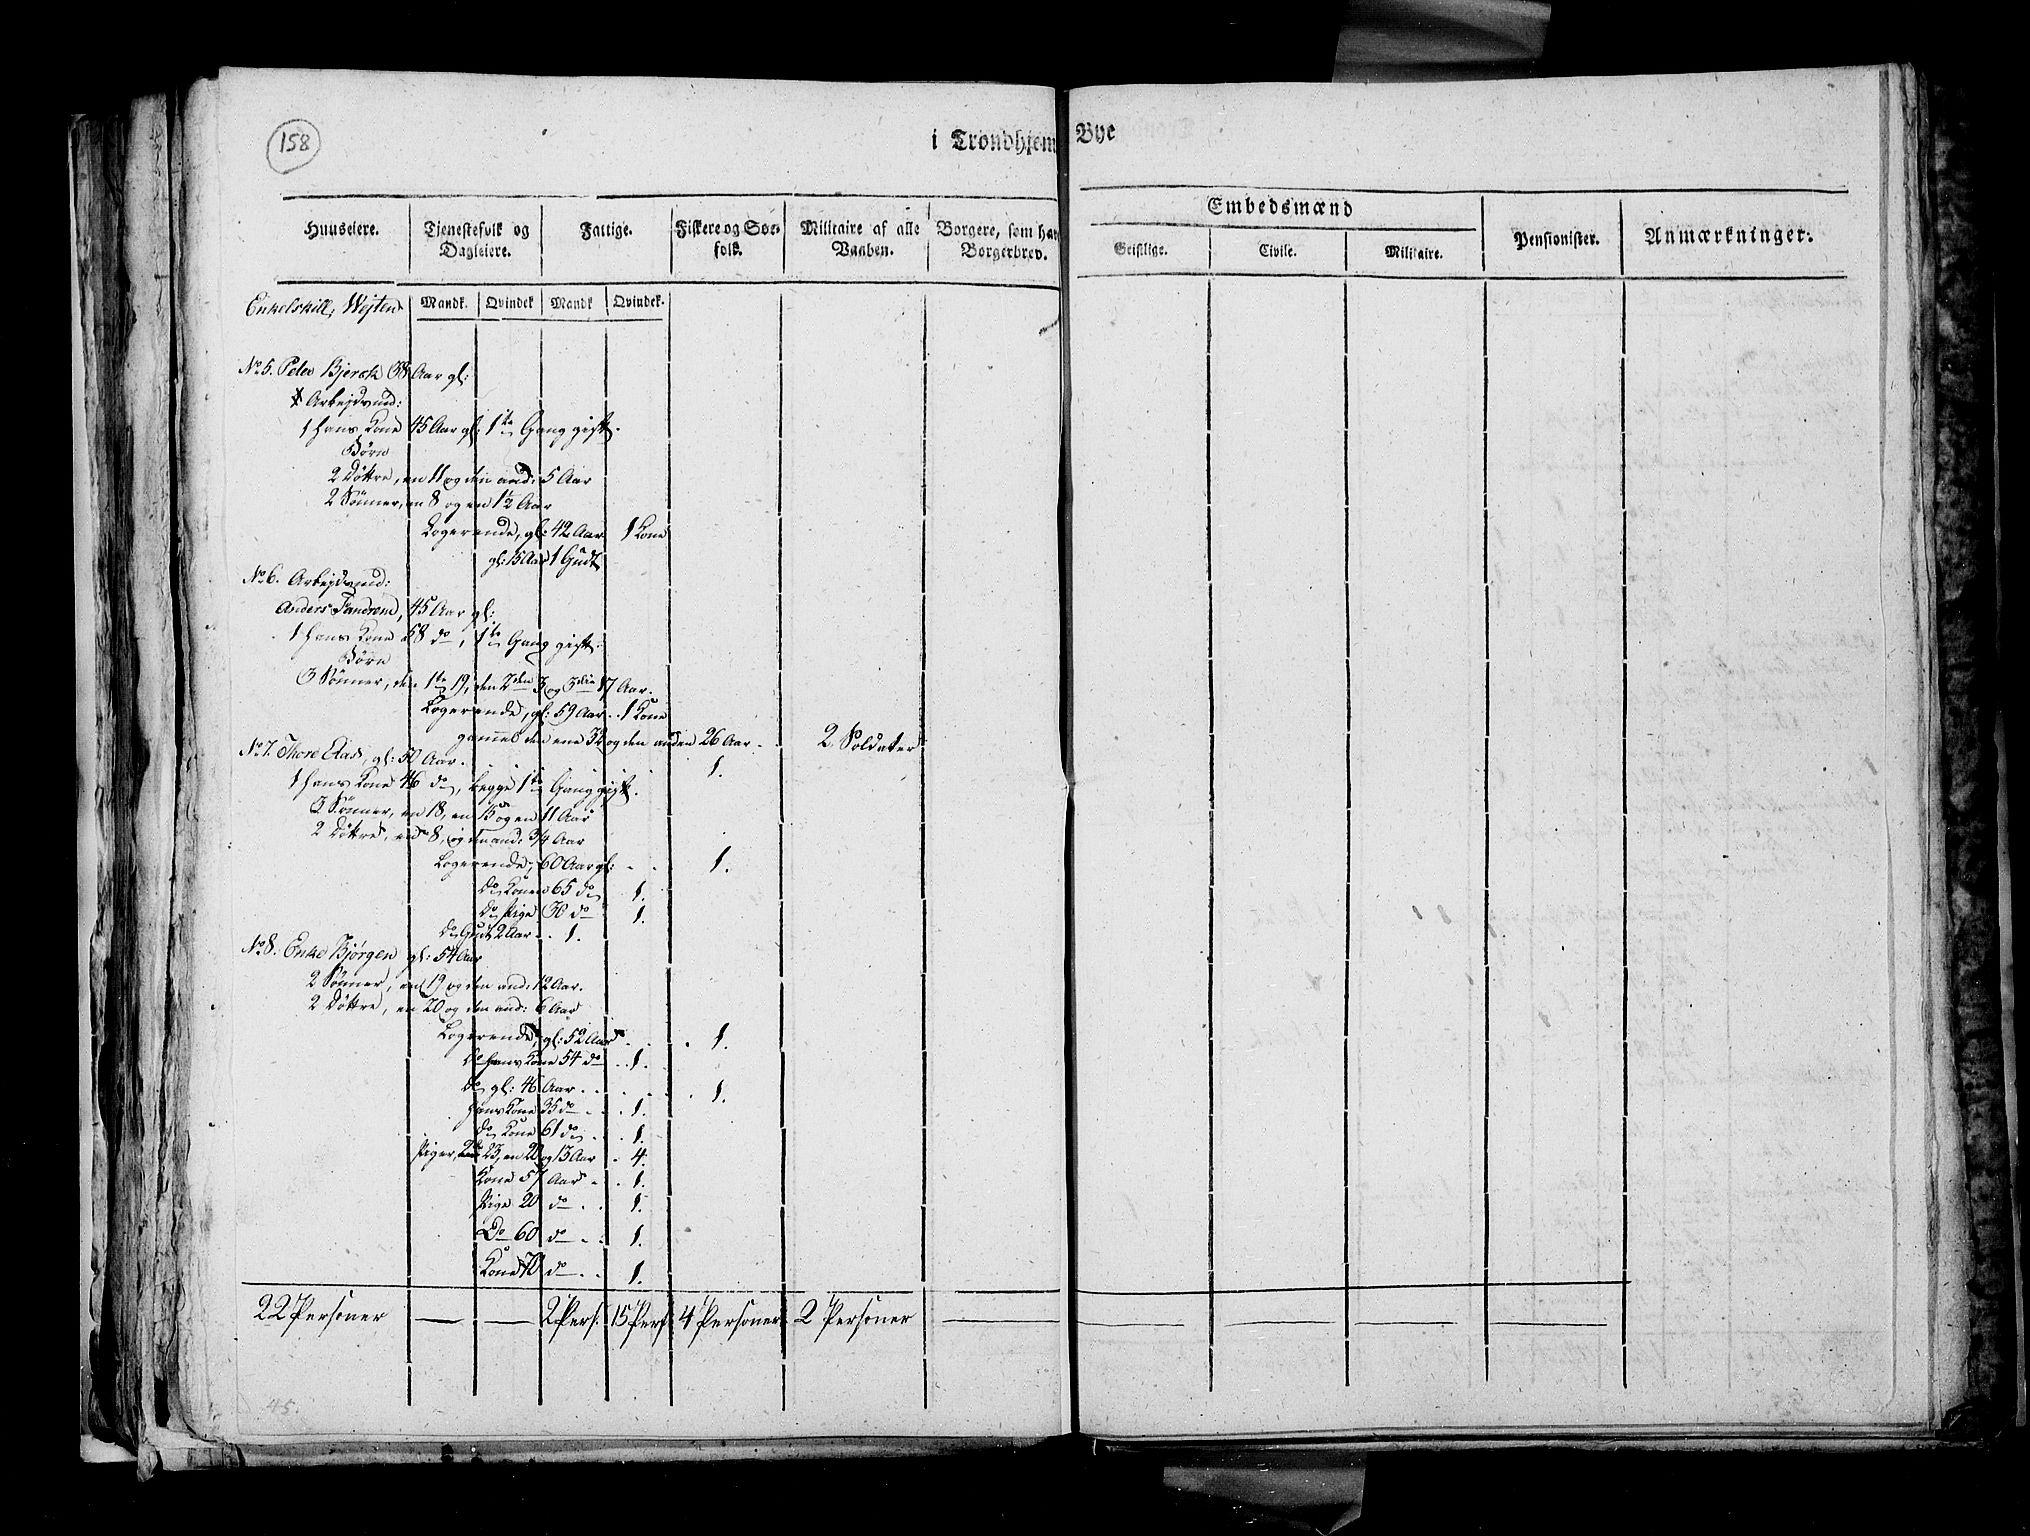 158
i Trondhjem Bye
Huuseiere.
Tjenestefolk og Dagleiere.
Fattige.
Fiskere og Søefolk.
Militaire af alle Vaaben.
Borgere, som har Borgerbrev.
Embedsmænd
Geistlige.
Civile.
Militaire.
Pensionister.
Anmærkninger.
Mandk. Qvindek Mandk Qvindek.
Enkelskill, Wejten
No 5. Peter Bjerck 38 Aar gl:
Arbejdsmd:
1 hans Kone 45 Aar gl: 1te Gang gift.
Börn
2 Döttre, en 11 og den and: 5 Aar
2 Sönner, en 8 og en 1½ Aar
Logerende, gl: 42 Aar 1 Kone
gl: 15 Aar 1 Gudt
No 6. Arbejdsmd:
Anders 45 Aar gl:
1 hans Kone 58 do, 1te Gang gift.
Börn
3 Sönner, den 1te 19, den 2den 3 og 3die 17 Aar.
Logerende, gl: 59 Aar . . 1 Kone
gammel den ene 32 og den anden 26 Aar . 2 Soldater
No 7. Thore Elas, gl: 50 Aar. 1.
1 hans Kone 46 do, begge 1te Gang gift.
3 Sönner, en 18, en 15 og en 11 Aar
2 Döttre, en 8, og den and: 3/4 Aar
Logerende, 60 Aar gl: - . 1.
do Kone 65 do 1.
do Pige 30 do 1.
do Gudt 2 Aar . . 1.
No 8. Enke Bjørgen gl: 54 Aar
2 Sönner, en 19 og den and: 12 Aar.
2 Döttre, en 20 og den and: 6 Aar
Logerende, gl: 52 Aar . . 1.
do hans Kone 54 do . . 1.
do gl: 46 Aar . . . 1.
hans Kone 35 do . . 1.
do Kone 61 do . . 1.
Piger, 2de 23, en 20 og 13 Aar . 4.
Kone 57 Aar . . 1.
Pige 20 do . . 1.
Do 60 do . . 1.
Kone 70 do . . 1.
22 Personer — — 2 Pers. 15 Pers 4 Personer 2 Personer —
45.